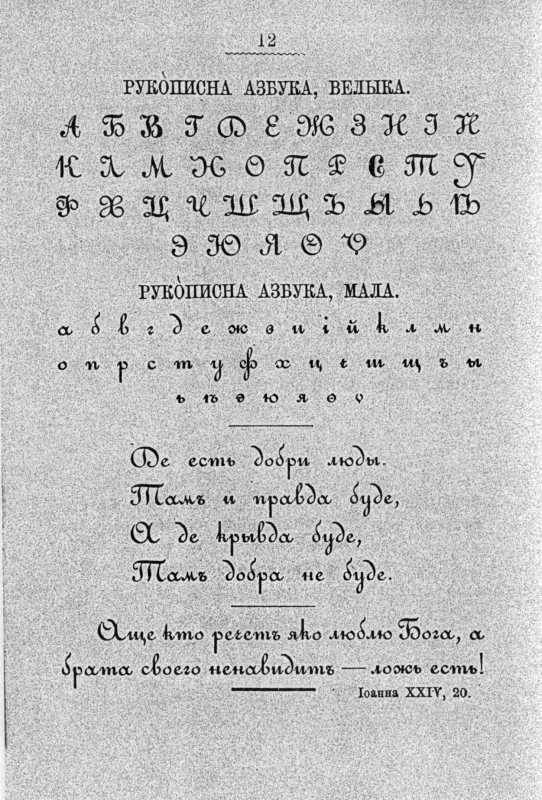 12
РУКО̀ПИСНА АЗБУКА, ВЕЛЫКА.
А Б В Г Д Е Ж З И І Й
К Л М Н О П Р С Т У
Ф Х Ц Ч Ш Щ Ъ Ы Ь Ѣ
Э Ю Я Ѳ Ѵ
РУКО̀ПИСНА АЗБУКА, МАЛА.
а б в г д е ж з и і й к л м н
о п р с т у ф х ц ч ш щ ъ ы
ь ѣ э ю я ѳ ѵ
Де есть добри люды.
Тамъ и правда буде,
А де крывда буде,
Тамъ добра не буде.
Аще кто речетъ яко люблю Бога, а
брата своего ненавидить — ложь есть!
Іоанна XXIV, 20.